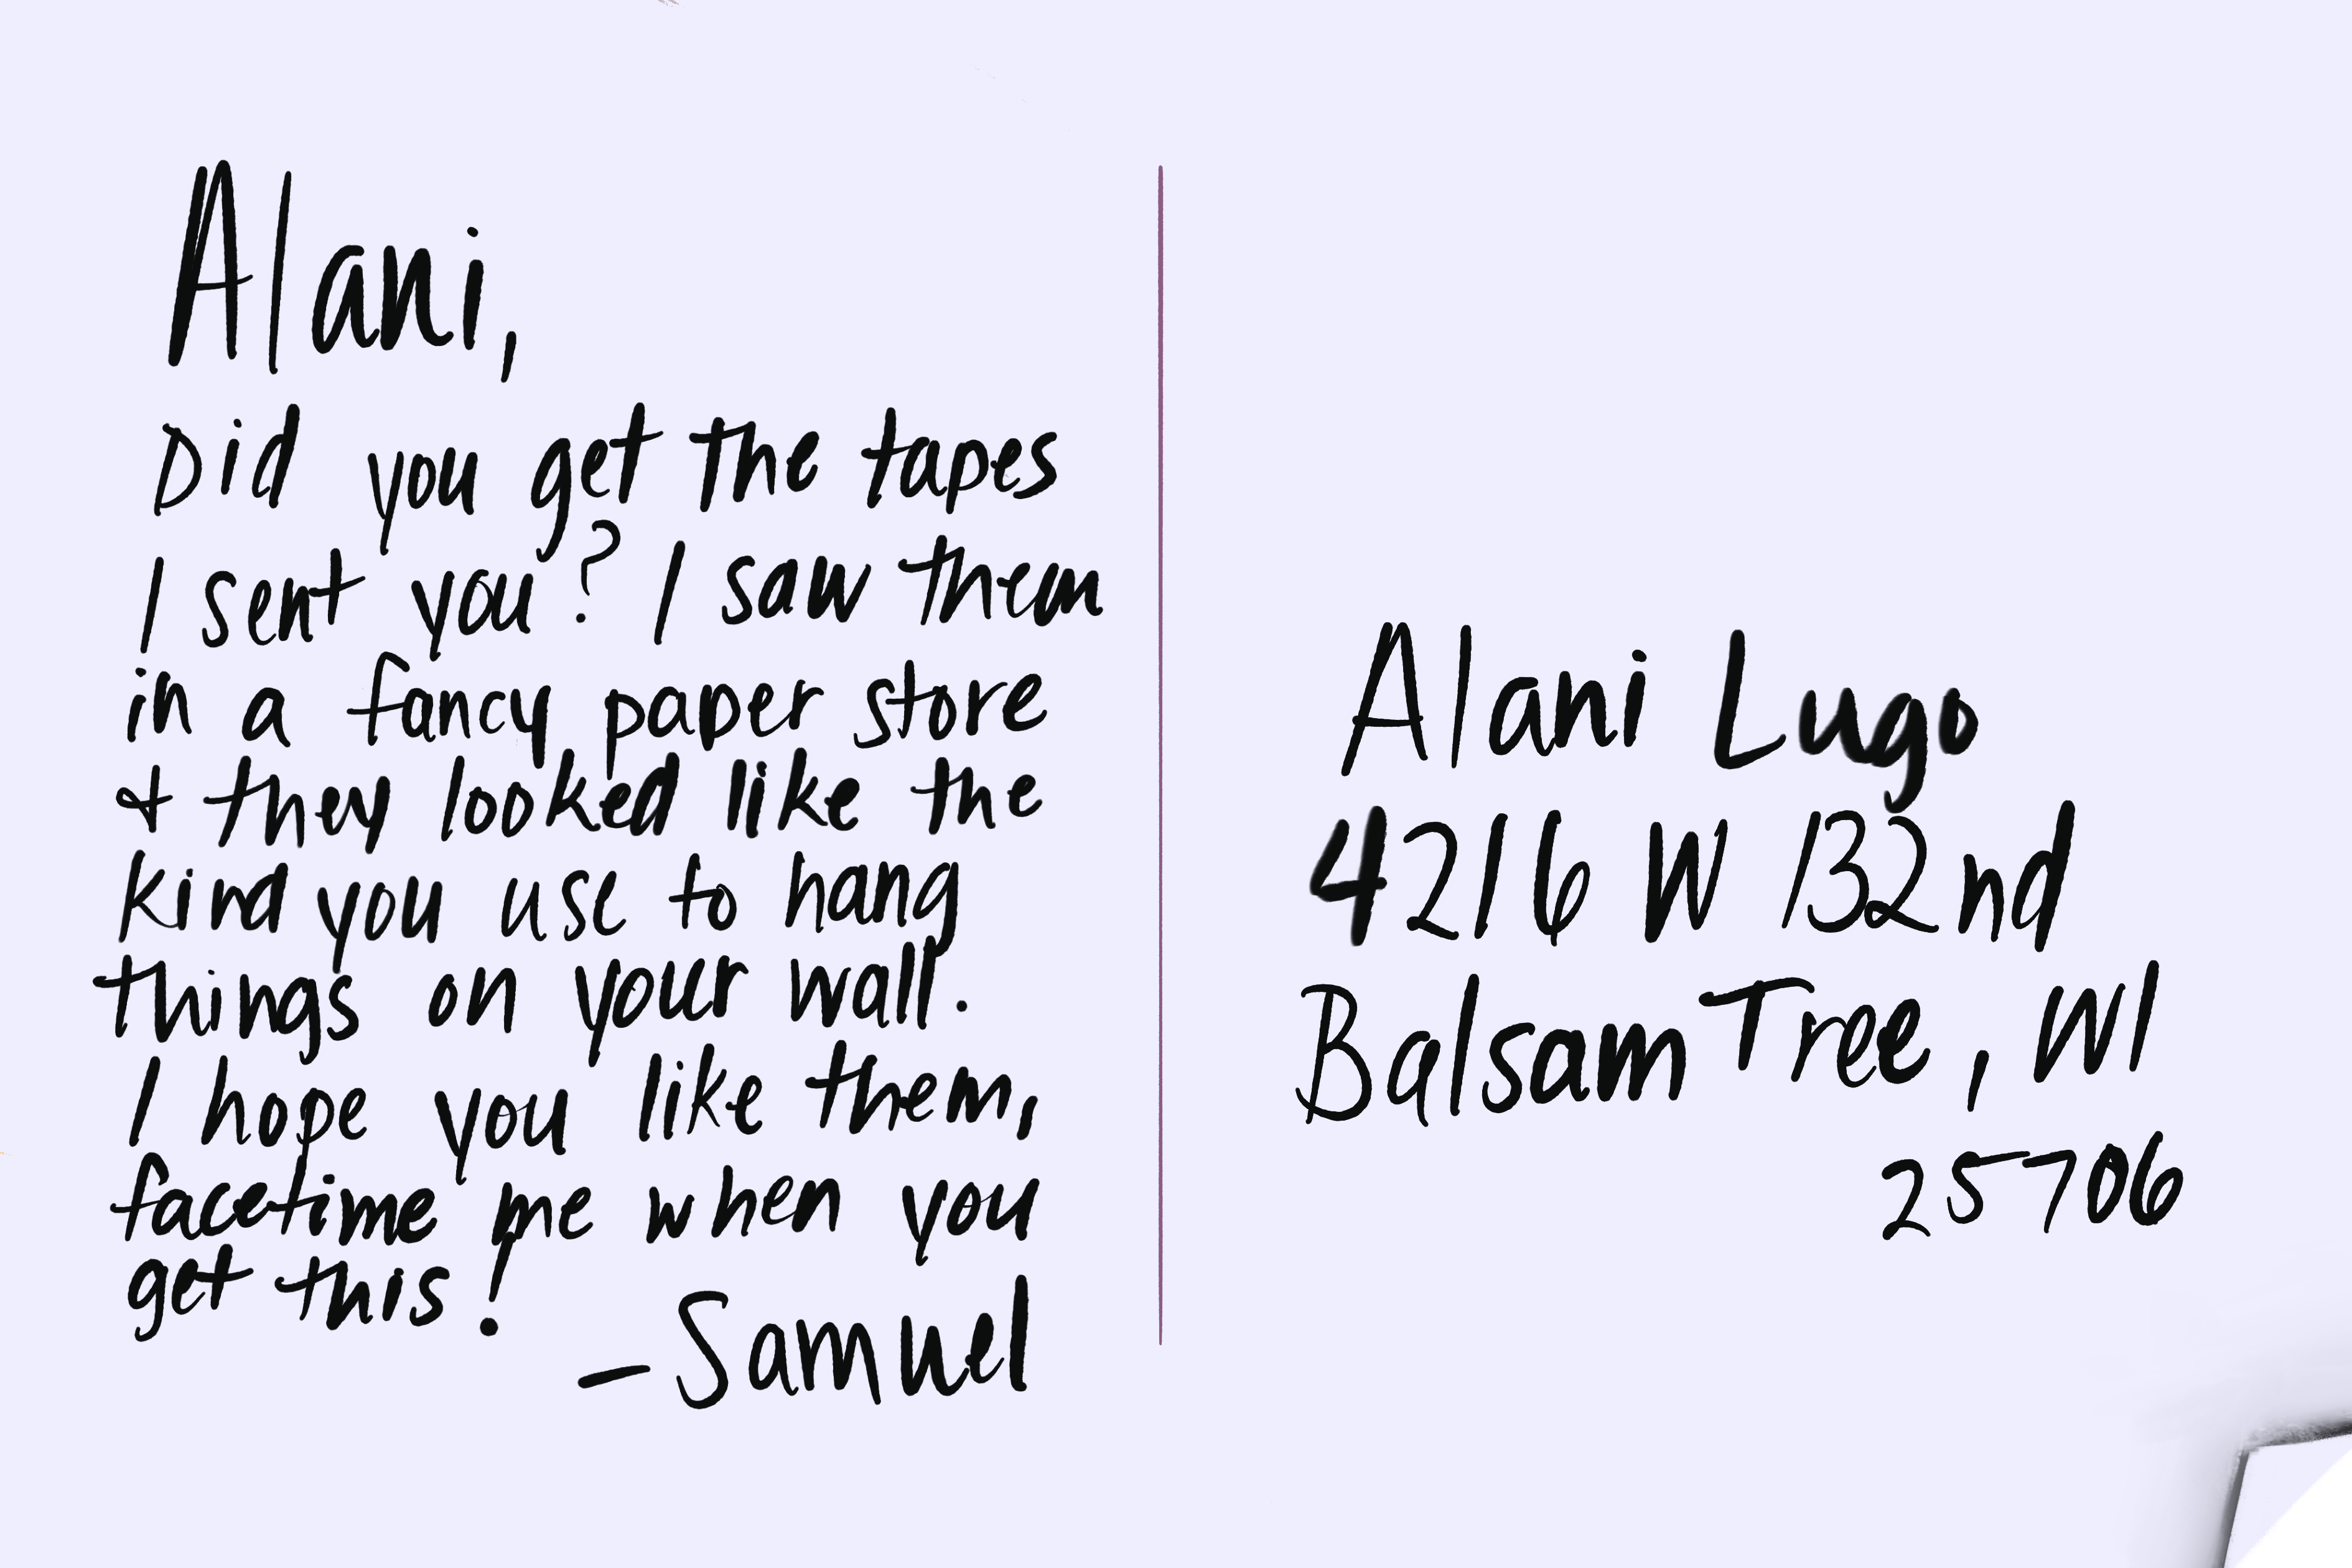 Alani,
Did you get the tapes
I sent you? I saw them
in a fancy paper store
& they looked like the
kind you use to hang
things on your wall.
I hope you like them,
facetime me when you
get this!
-Samuel
Alani Lugo
4216 W 132nd
Balsam Tree, WI
25706